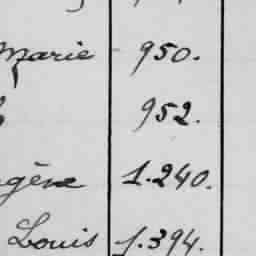 Marie 950.
952.
gène 1.240.
Louis 1.394.